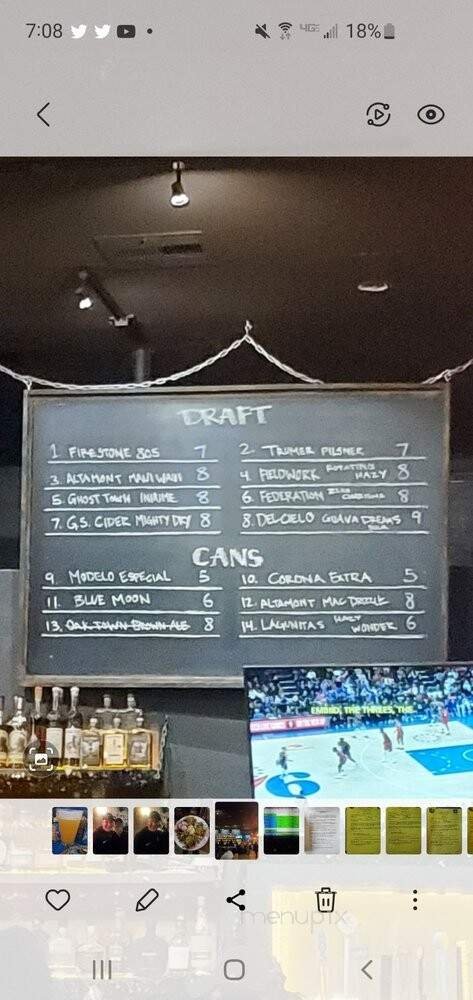 7:08
4GE 18%
DRAFT
1 FIRESTONE 805 7
2. TRUMER PILSNER 7
3. ALTAMONT MAUI WAUI 8
4. FIELDWORK ROTATING HAZY 8
5. GHOST TOWN INHUME 8
6. FEDERATION 8
7. G.S. CIDER MIGHTY DRY 8
8. DELCIELO GUAVA DREAMS 9
CANS
9. MODELO ESPECIAL 5
10. CORONA EXTRA 5
11. BLUE MOON 6
12. ALTAMONT MAC DRIZZLE 8
13. OAKTOWN BROWN ALE 8
14. LAGUNITAS HAZY WONDER 6
EMBIID, THE THREES, THE
6
menupix